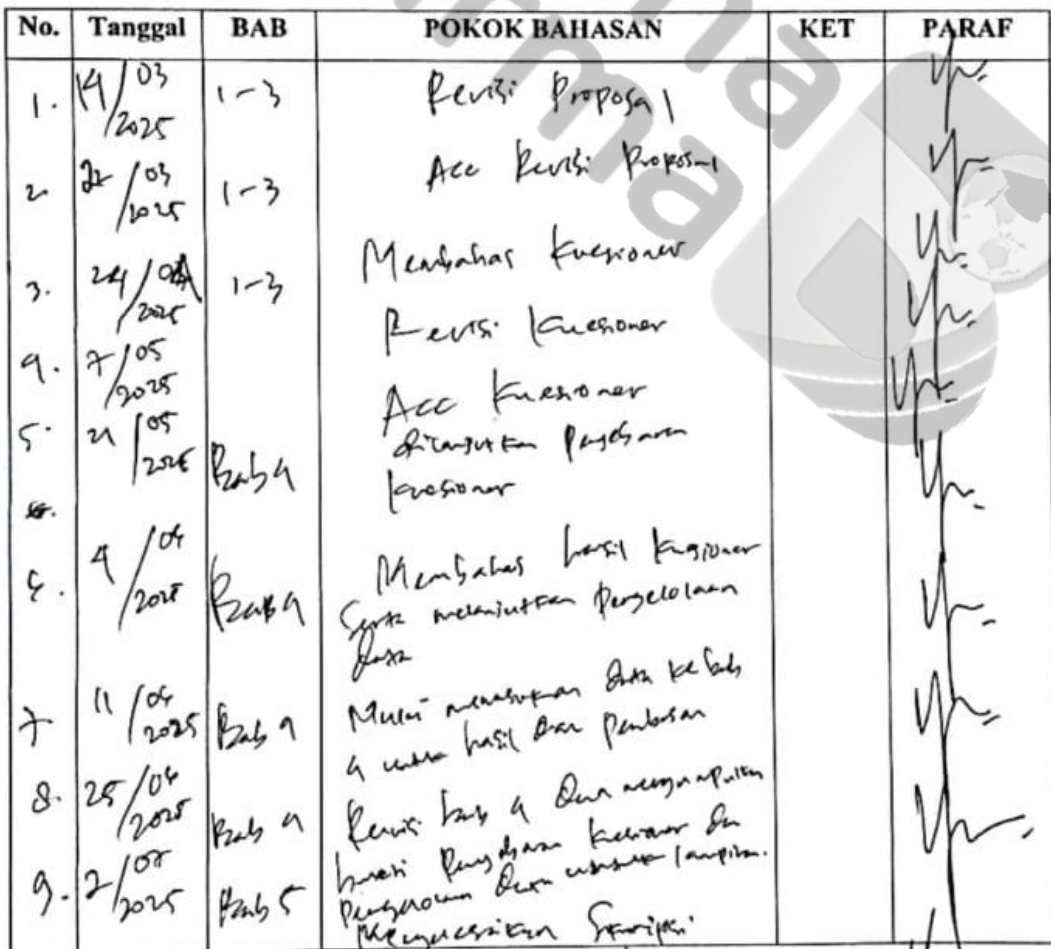 No. Tanggal BAB POKOK BAHASAN KET PARAF
1. 14/03/2025 1-3 Revisi Proposal
2 22/03/2025 1-3 Acc Revisi Proposal
3. 24/04/2025 1-3 Membahas Kuesioner
4. 7/05/2025 Revisi Kuesioner
5. 21/05/2025 Bab 4 Acc Kuesioner
dilanjutkan penyebaran
kuesioner
6. 4/06/2025 Bab 4 Membahas hasil kuesioner
Serta melanjutkan pengelolaan
data
7 11/06/2025 Bab 4 Mulai memasukan data ke bab
4 untuk hasil dan pembasan
8. 25/06/2025 Bab 4 Revisi bab 4 dan mengumpulkan
penyebaran kuesioner
data lampiran.
9. 2/07/2025 Bab 5 Menyelesaikan Skripsi